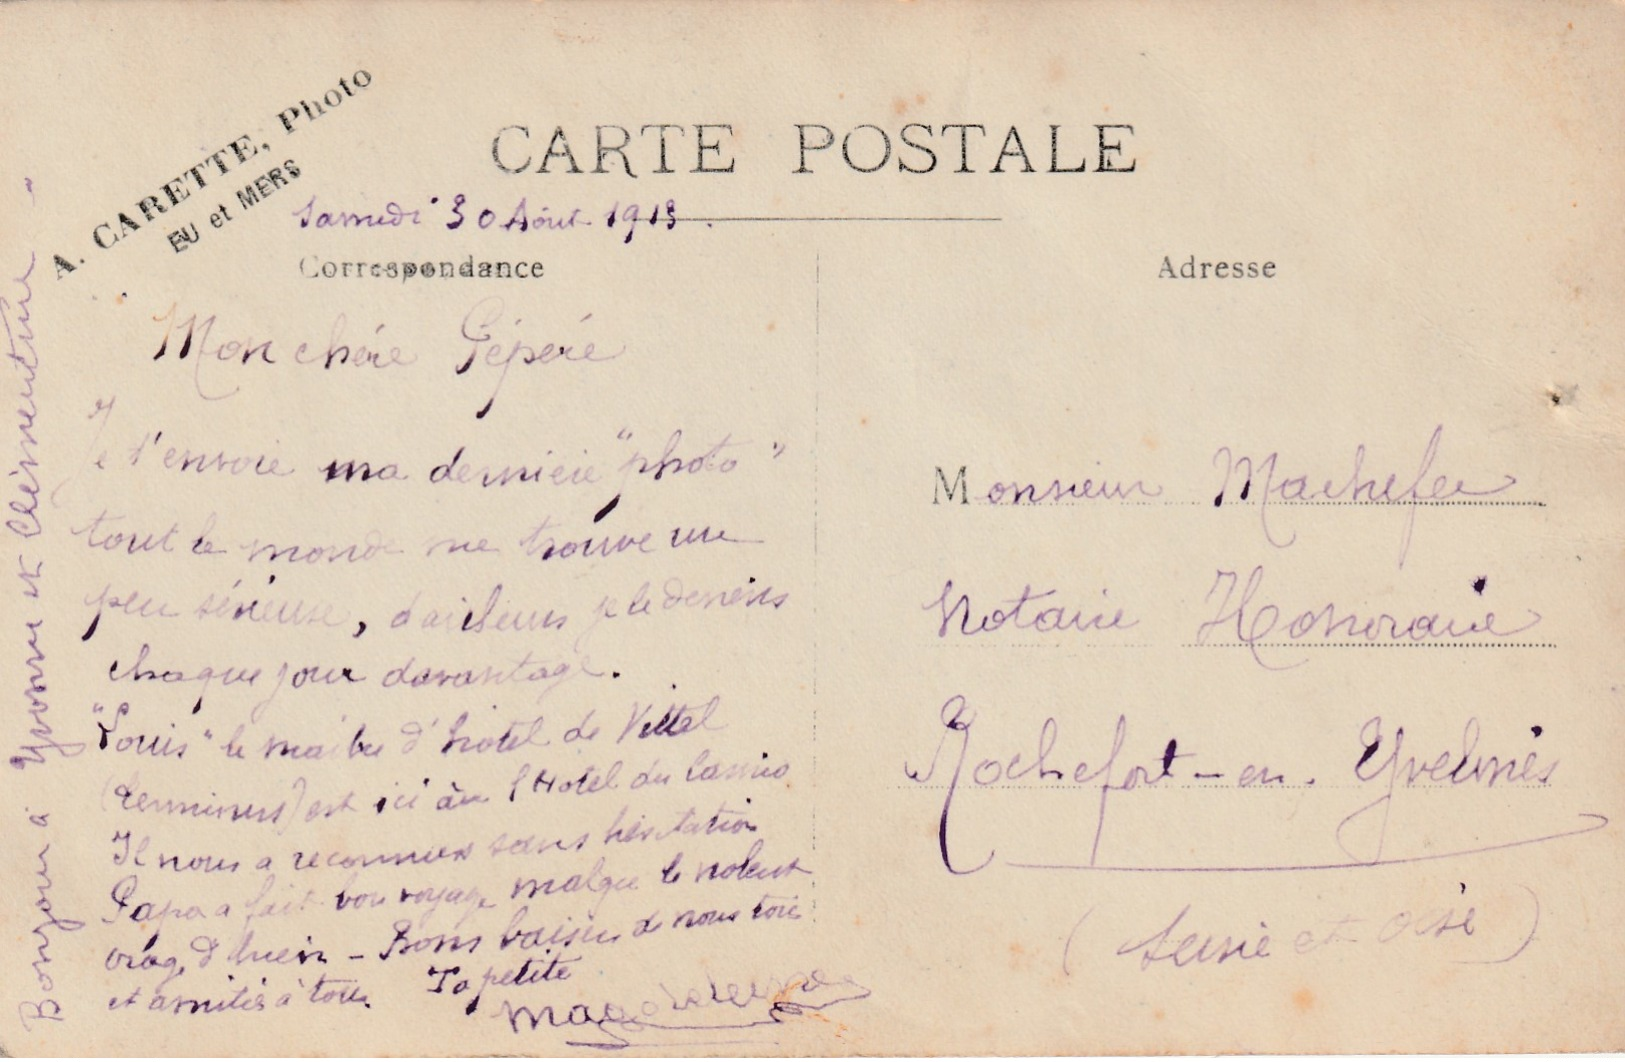 A. CARETTE, Photo
EU et MERS
CARTE POSTALE
Samedi 30 Aôut 1913.
Correspondance
Adresse
Mon chére Pépére
Je t'envoie ma derniere "photo"
tout le monde me trouve un
peu sérieuse, d'ailleurs je le deviens
chaque jour davantage.
"Louis" le maitre d'hotel de Vittel
(Terminus) est ici à l'Hotel du Casino
Il nous a reconnus sans hésitation
Papa a fait bon voyage malgré le violent
orage d'hier - Bons baisers de nous tous
et amitiés à tous. Ta petite
Magdeleine
Bonjour à Yvonne et Clémentine -
Monsieur Machefer
Notaire Honoraire
Rochefort-en-Yvelines
(Seine et Oise)